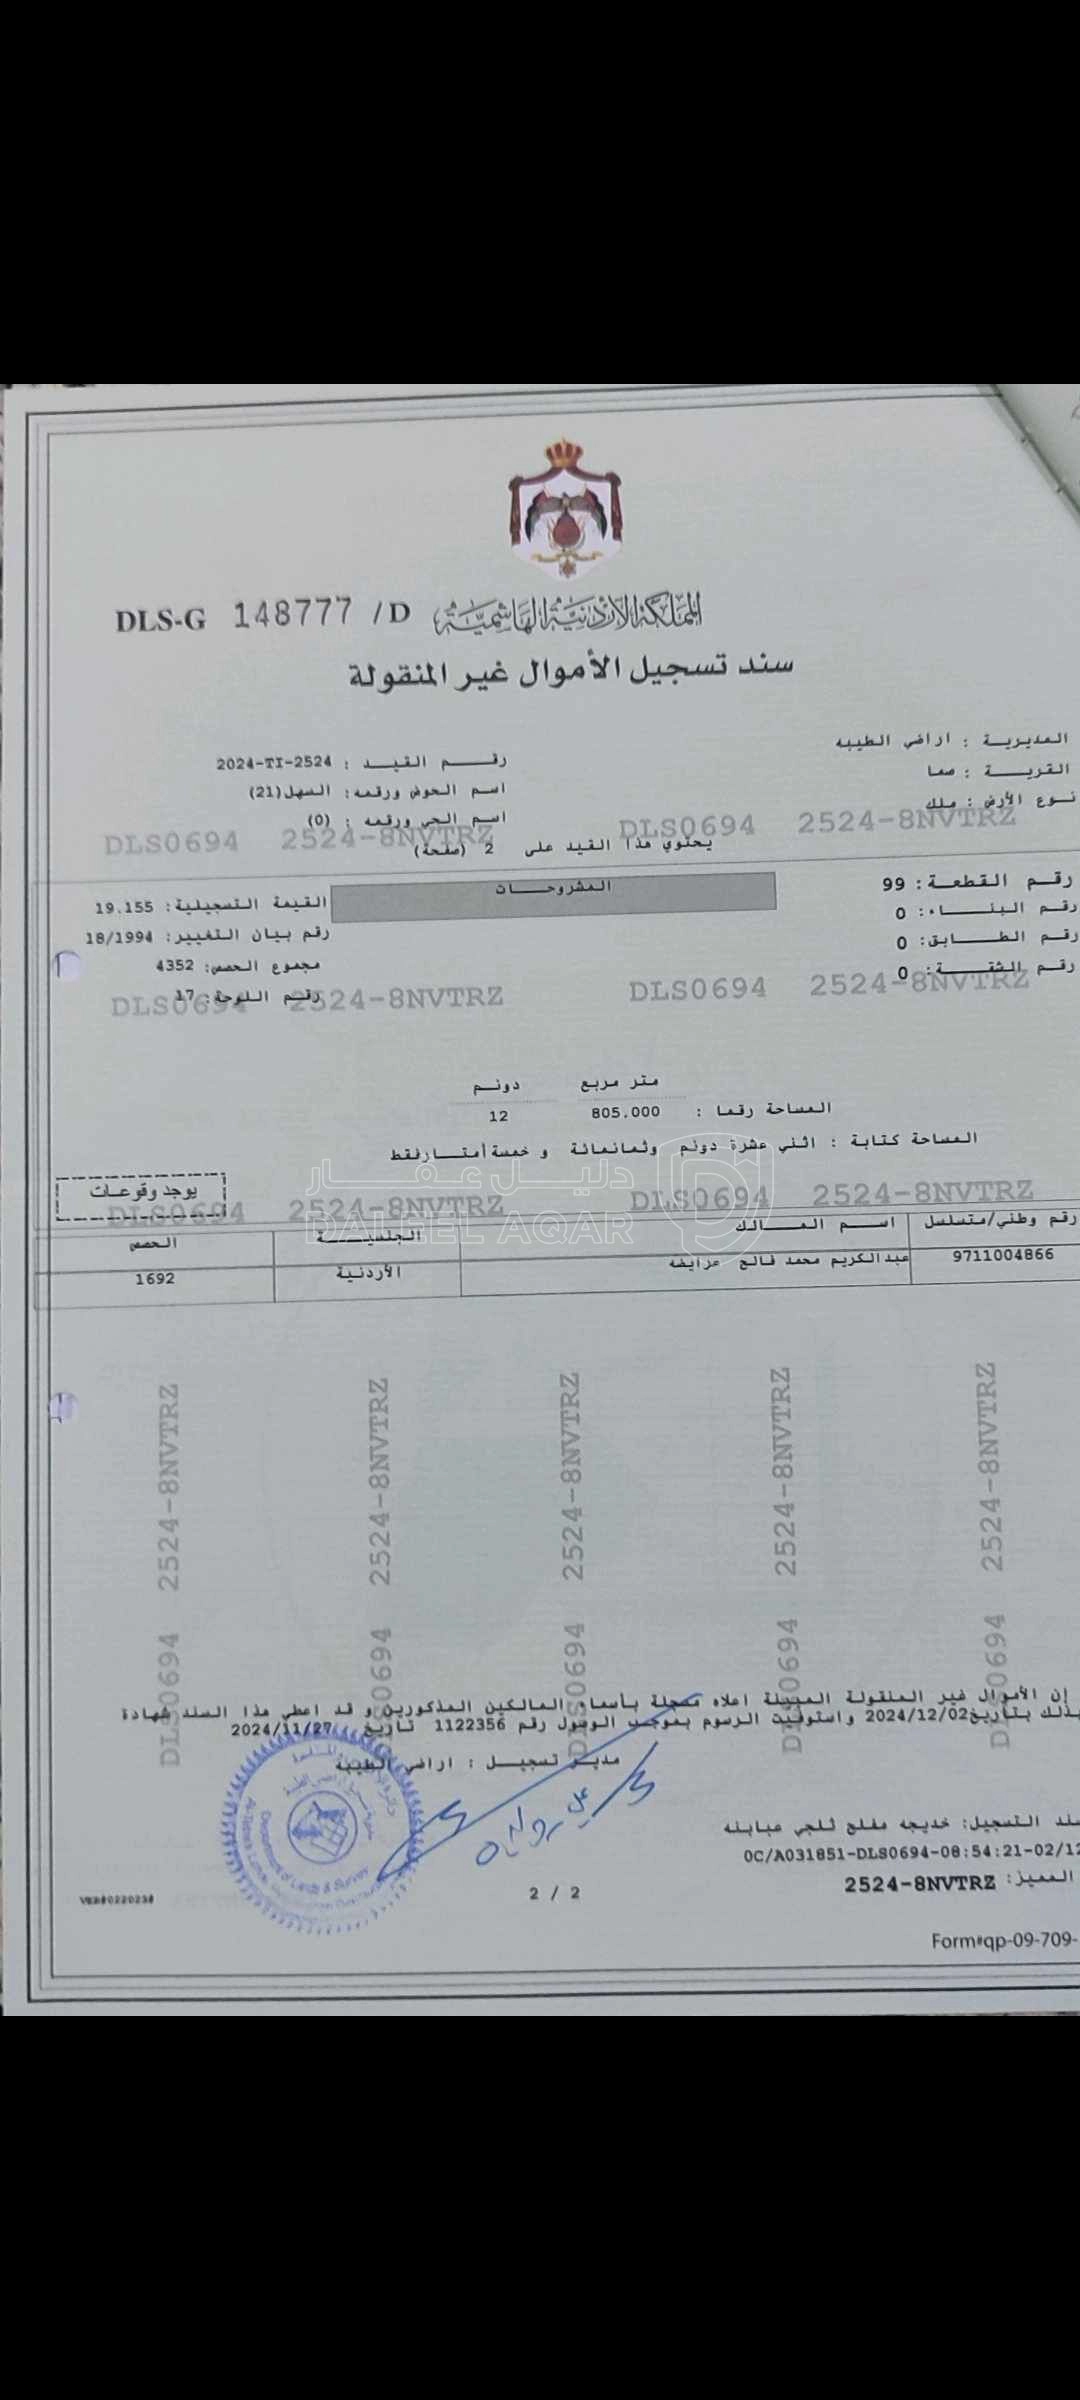 المملكة الأردنية الهاشمية
DLS-G 148777 /D
سند تسجيل الأموال غير المنقولة
المديرية : اراضي الطيبه
القرية : صما
نوع الأرض : ملك
رقم القيد : 2024-TI-2524
اسم الحوض ورقمه: السهل(21)
اسم الحي ورقمه : (0)
يحتوي هذا القيد على 2 (صفحة)
DLS0694 2524-8NVTRZ DLS0694 2524-8NVTRZ
رقم القطعة: 99
رقم البناء: 0
رقم الطابق: 0
رقم الشقة: 0
المشروحات
القيمة التسجيلية: 19.155
رقم بيان التغيير: 18/1994
مجموع الحصص: 4352
رقم اللوحة: 17
DLS0694 2524-8NVTRZ DLS0694 2524-8NVTRZ
متر مربع دونم
المساحة رقما : 805.000 12
المساحة كتابة : اثني عشرة دونم وثمانمائة و خمسة أمتار فقط
دليل عقار
DALEEL AQAR
يوجد وقوعات
DLS0694 2524-8NVTRZ DLS0694 2524-8NVTRZ
رقم وطني/متسلسل اسم المالك الجنسية الحصص
9711004866 عبدالكريم محمد فالح عرايضه الأردنية 1692
DLS0694 2524-8NVTRZ
DLS0694 2524-8NVTRZ
DLS0694 2524-8NVTRZ
DLS0694 2524-8NVTRZ
DLS0694 2524-8NVTRZ
إن الأموال غير المنقولة المبينة اعلاه مسجلة بأسماء المالكين المذكورين و قد اعطي هذا السند شهادة
بذلك بتاريخ 2024/12/02 واستوفيت الرسوم بموجب الوصول رقم 1122356 تاريخ 2024/11/27
مدير تسجيل : اراضي الطيبة
Department of Lands & Survey
سند التسجيل: خديجه مفلح ثلجي عبابنه
0C/A031851-DLS0694-08:54:21-02/12
المميز: 2524-8NVTRZ
2 / 2
VER#0220238
Form#qp-09-709-